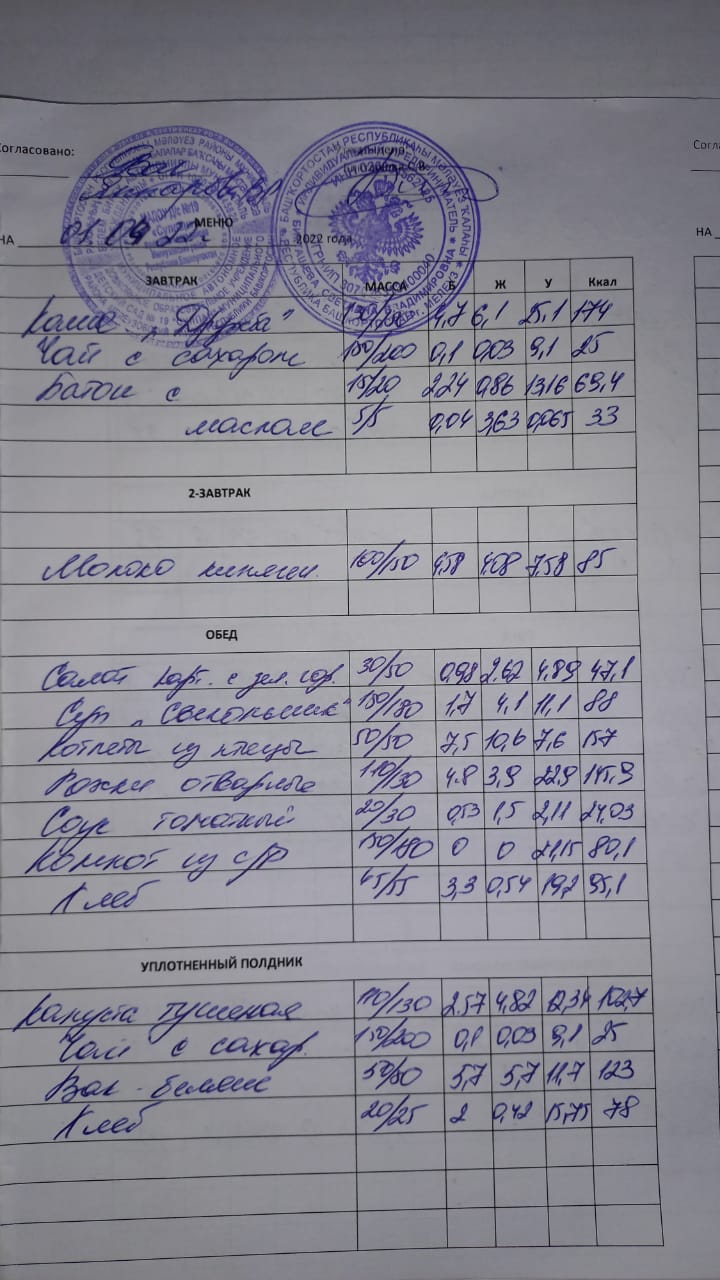 Согласовано:
МЕНЮ
НА 01.09.22г. 2022 года
ЗАВТРАК МАССА Б Ж У Ккал
Каша "Дружба" 4,7 6,1 25,1 174
Чай с сахаром 150/200 0,1 0,03 9,1 25
Батон с 15/20 2,24 0,86 13,16 69,4
маслом 5/5 0,04 3,63 0,065 33
2-ЗАВТРАК
Молоко кипячен. 100/150 4,58 4,08 7,58 85
ОБЕД
Салат карт. с зел. гор. 30/50 0,98 2,62 4,89 47,1
Суп "Свекольник" 150/180 1,7 4,1 11,1 88
Котлеты из птицы 50/50 7,5 10,6 7,6 157
Рожки отварные 110/130 4.8 3,9 22,9 145,9
Соус томатный 20/30 0,53 1,5 2,11 24,03
Компот из с/ф 150/180 0 0 21,15 80,1
Хлеб 45/55 3,3 0,54 19,2 95,1
УПЛОТНЕННЫЙ ПОЛДНИК
Капуста тушеная 110/130 2.57 4,82 12,34 102,7
Чай с сахар. 150/200 0,1 0,03 9,1 25
Вак-беляш 50/50 5,7 5,7 11,7 123
Хлеб 20/25 2 0,42 15,75 78
НА